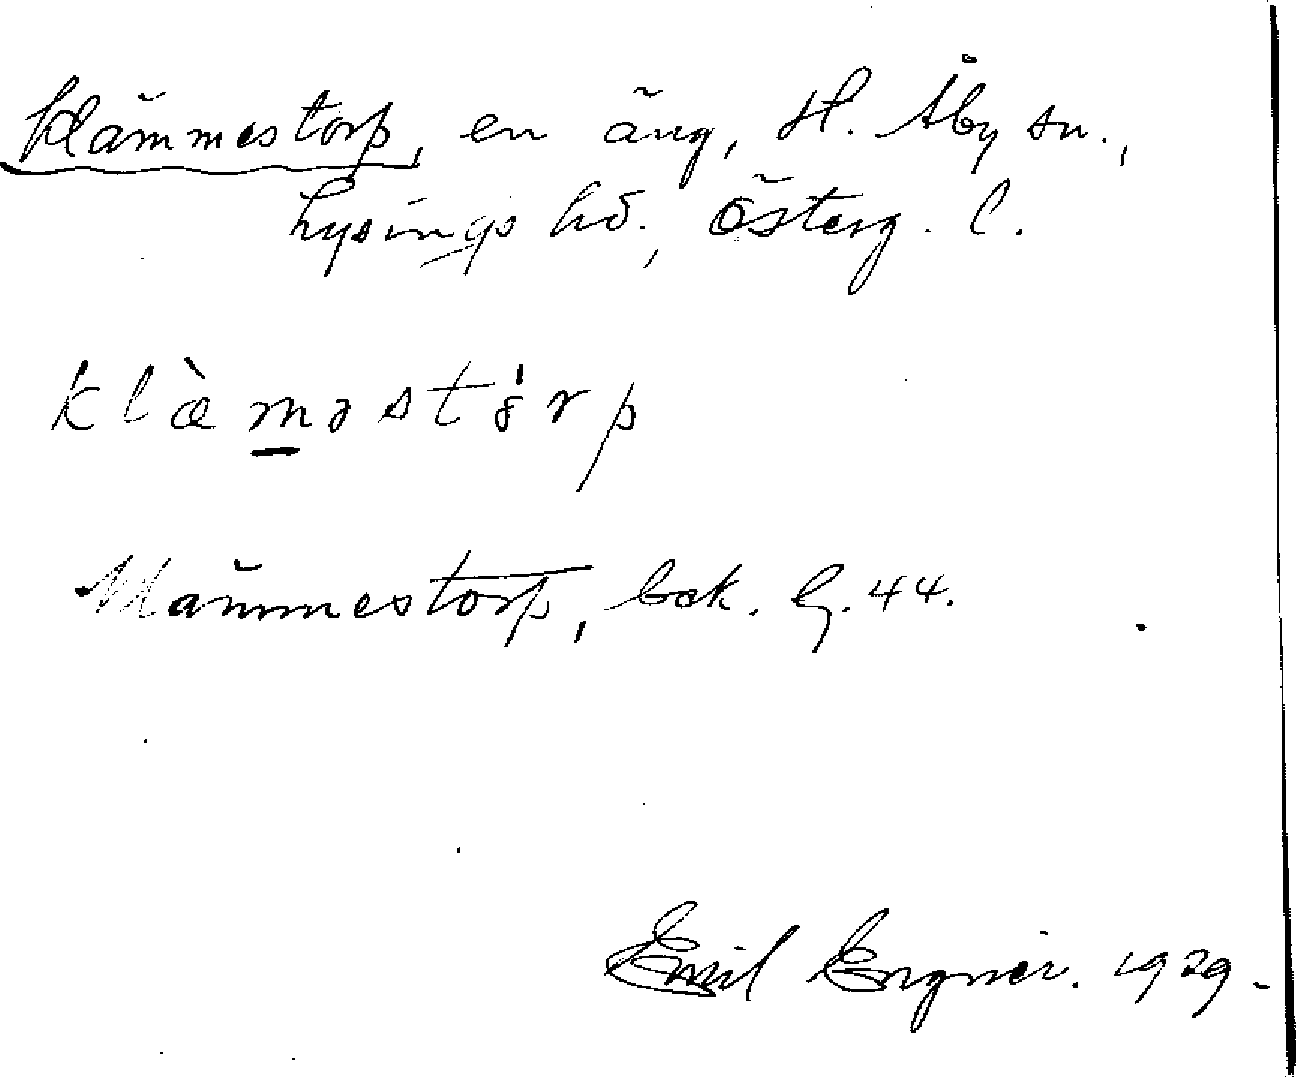 Klämmestorp, en äng, H. Åby sn.,
Lysings hd., Österg. l.
klæ̀məstȯ́rp
Mämmestorp, bek. G. 44.
Emil Engnér. 1929.